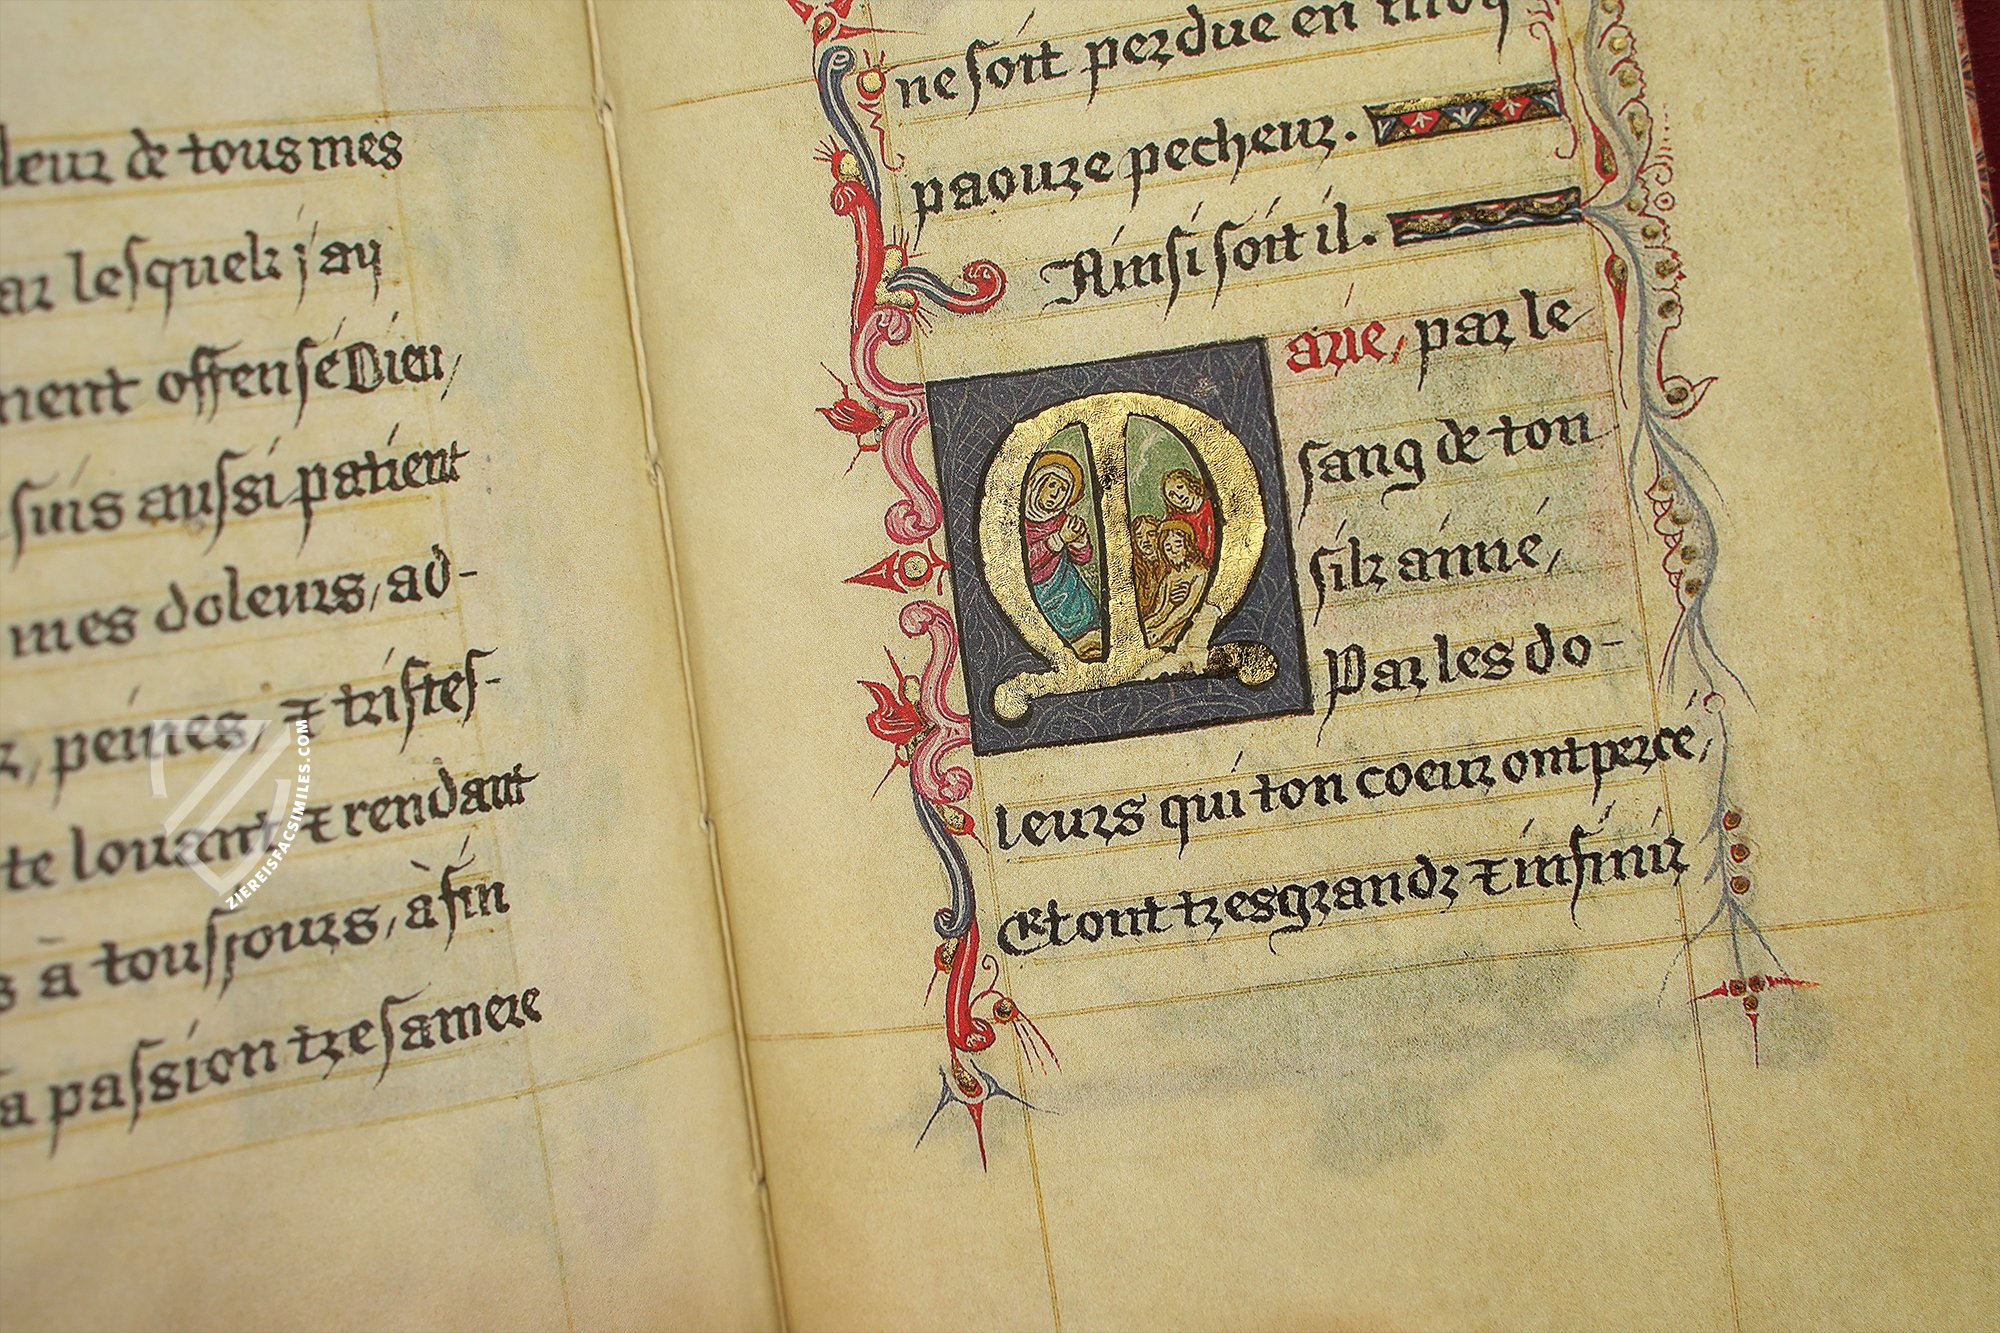 leur de tous mes
ar lesquelz j'ay
ment offensé Dieu,
suis aussi patient
mes doleurs, ad-
z, peines, & tristes-
te louant & rendant
s à tousjours, à fin
a passion tresamere
ne soit perdue en moy
paoure pecheur.
Ainsi soit il.
Marie, par le
sang de ton
filz aimé,
Par les do-
leurs qui ton coeur ont percé,
Et ont tresgrandz & infiniz
ZIEREISFACSIMILES.COM